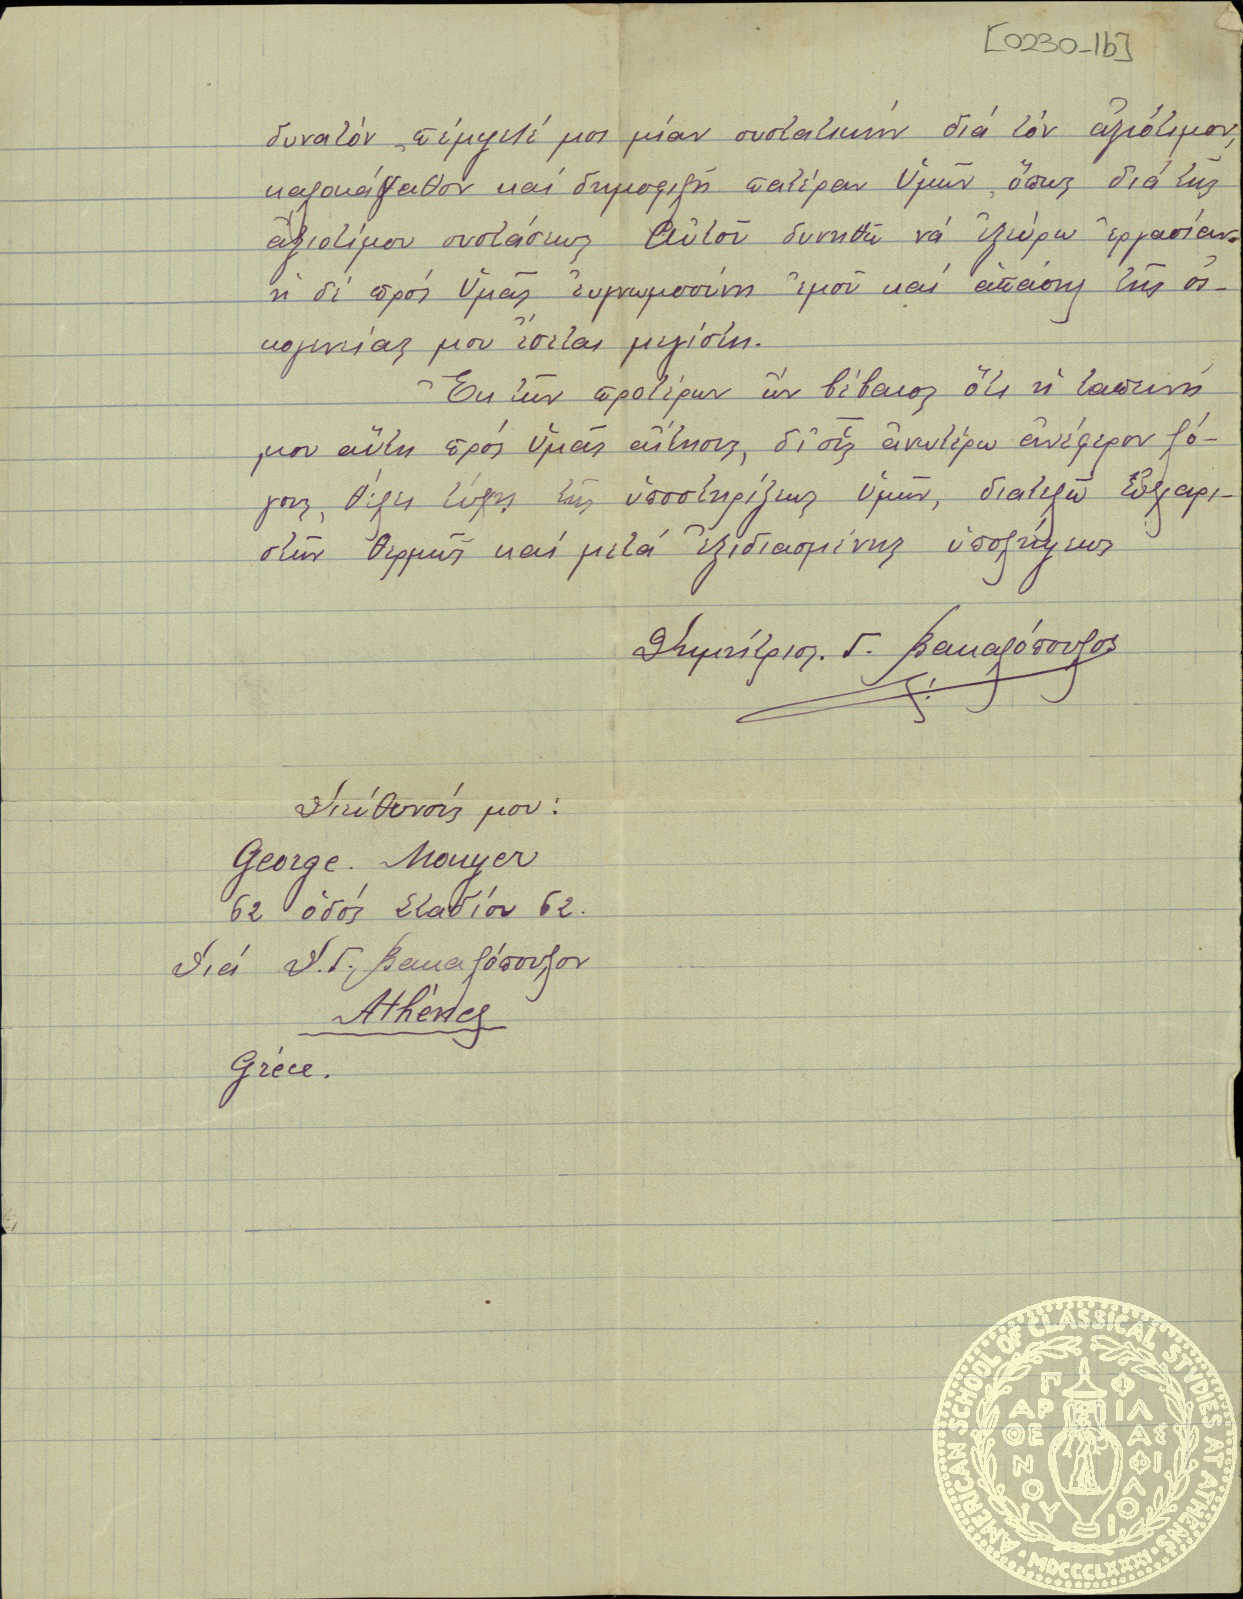 [0230-1b]
δυνατόν, πέμψετέ μοι μίαν συστατικήν διά τόν ἀξιότιμον,
καλοκάγαθον καί δημοφιλῆ πατέραν Ὑμῶν, ὅπως διά τῆς
ἀξιοτίμου συστάσεως Αὐτοῦ δυνηθῶ νά ἐξεύρω ἐργασίαν.
ἡ δέ πρός Ὑμᾶς ἐυγνωμοσύνη ἐμοῦ καί ἁπάσης τῆς οἰ-
κογενείας μου ἔσεται μεγίστη.
Ἐκ τῶν προτέρων ὤν βέβαιος ὅτι ἡ ταπεινή
μου αὕτη πρός Ὑμᾶς αἴτησις, δι' οὓς ἀνωτέρω ἀνέφερον λό-
γους, θέλει τύχῃ τῆς ὑποστηρίξεως Ὑμῶν, διατελῶ Εὐχαρι-
στῶν θερμῶς καί μετά ἐξιδιασμένης ὑπολήψεως
Δημήτριος. Γ. Βακαλόπουλος
Διεύθυνσίς μου:
George. Mouyer
62 ὁδός Σταδίου 62.
Διά Δ. Γ. Βακαλόπουλον
Athénes
Gréce.
AMERICAN SCHOOL OF CLASSICAL STVDIES AT ATHENS
ΠΑΡΘΕΝΟΥ ΦΙΛΑΣ ΦΙΛΟΙ
MDCCCLXXXI